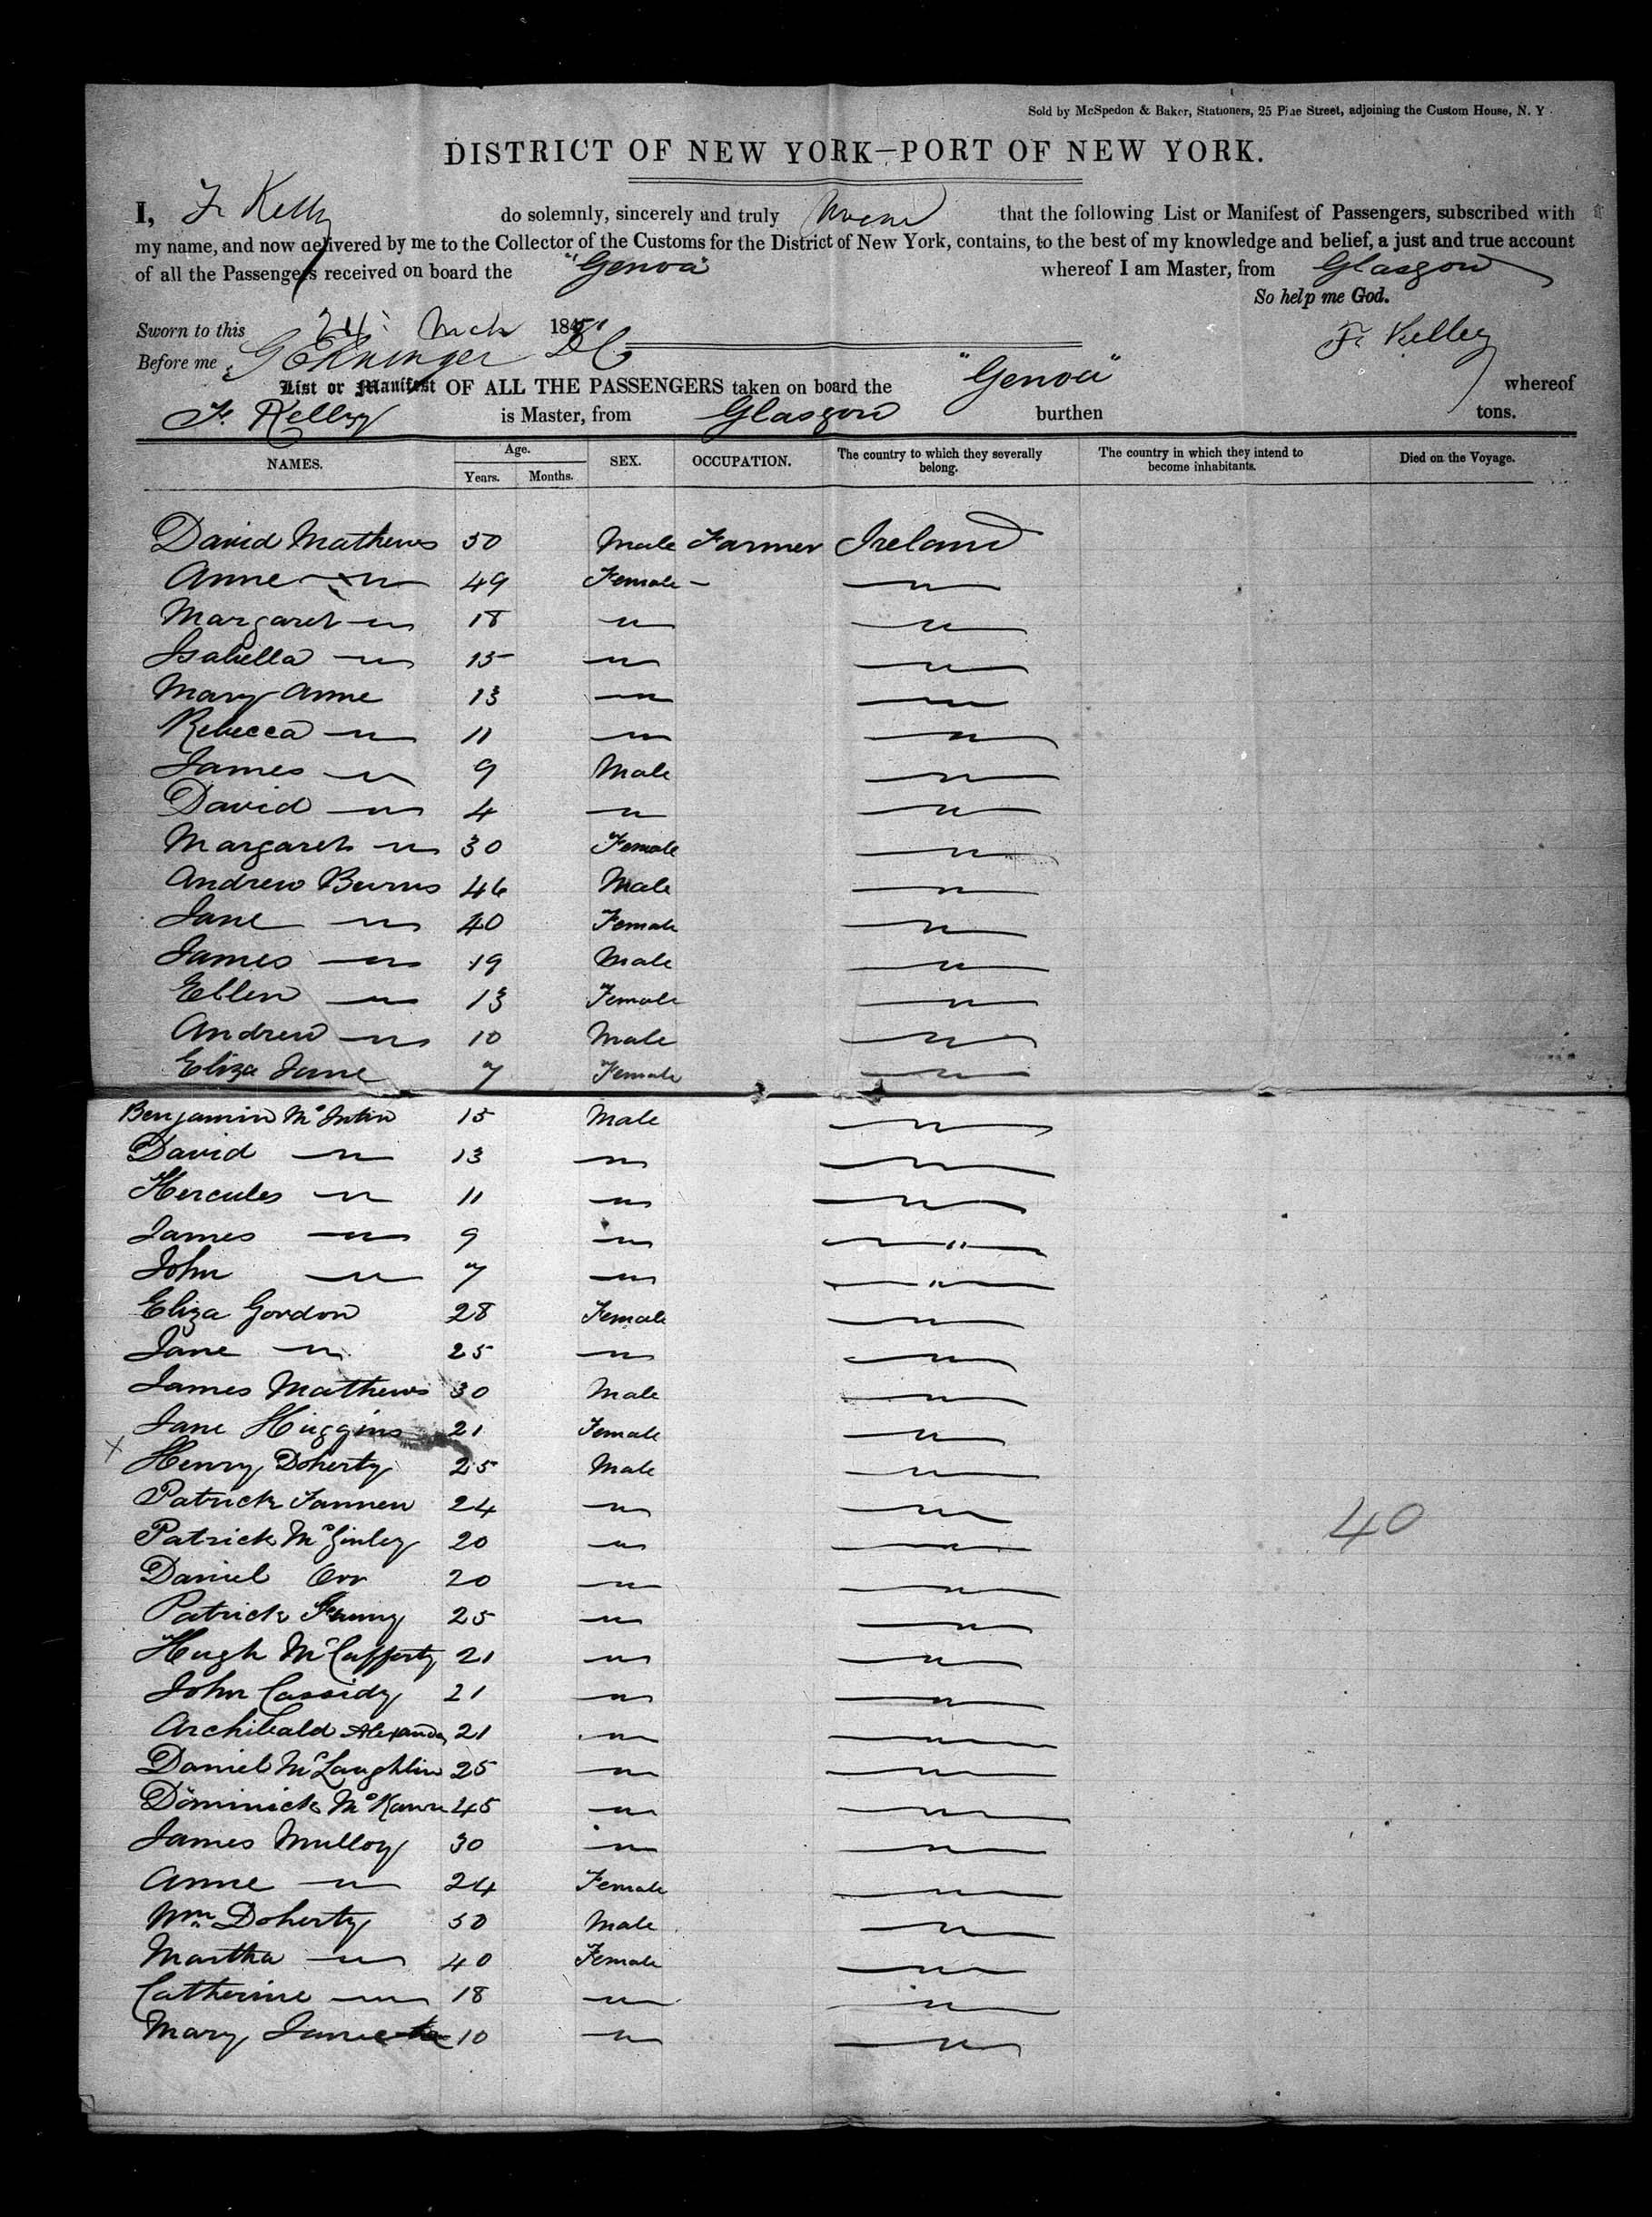 Sold by McSpedon & Baker, Stationers, 25 Pine Street, adjoining the Custom House, N. Y.
DISTRICT OF NEW YORK—PORT OF NEW YORK.
I, Fr Kelly do solemnly, sincerely and truly Swear that the following List or Manifest of Passengers, subscribed with
my name, and now delivered by me to the Collector of the Customs for the District of New York, contains, to the best of my knowledge and belief, a just and true account
of all the Passengers received on board the "Genova" whereof I am Master, from Glasgow
So help me God.
Sworn to this 24 Mch 185
Fr Kelley
Before me
List or Manifest OF ALL THE PASSENGERS taken on board the "Genova" whereof
Fr Kelley is Master, from Glasgow burthen tons.
NAMES. Age. Years. Months. SEX. OCCUPATION. The country to which they severally belong. The country in which they intend to become inhabitants. Died on the Voyage.
David Mathews 50 Male Farmer Ireland
Anne — " — 49 Female — — " —
Margaret — " 18 — " — — " —
Isabella — " 15 — " — — " —
Mary Anne 13 — " — — " —
Rebecca — " 11 — " — — " —
James — " 9 Male — " —
David — " 4 — " — — " —
Margaret — " 30 Female — " —
Andrew Burns 46 Male — " —
Jane — " 40 Female — " —
James — " 19 Male — " —
Ellen — " 13 Female — " —
Andrew — " 10 Male — " —
Eliza Jane 7 Female — " —
Benjamin 15 Male — " —
David — " 13 — " — — " —
Hercules — " 11 — " — — " —
James — " 9 — " — — " —
John — " 7 — " — — " —
Eliza Gordon 28 Female — " —
Jane — " 25 — " — — " —
James Mathews 30 Male — " —
Jane Huggins 21 Female — " —
x Henry Doherty 25 Male — " —
Patrick Fannen 24 — " — — " —
Patrick McGinley 20 — " — — " — 40
Daniel Orr 20 — " — — " —
Patrick 25 — " — — " —
Hugh McCafferty 21 — " — — " —
John Cassidy 21 — " — — " —
Archibald Alexander 21 — " — — " —
Daniel McLaughlin 25 — " — — " —
Dominick 45 — " — — " —
James Mulloy 30 — " — — " —
Anne — " 24 Female — " —
Wm Doherty 50 Male — " —
Martha — " 40 Female — " —
Catherine — " 18 — " — — " —
Mary Jane 10 — " — — " —